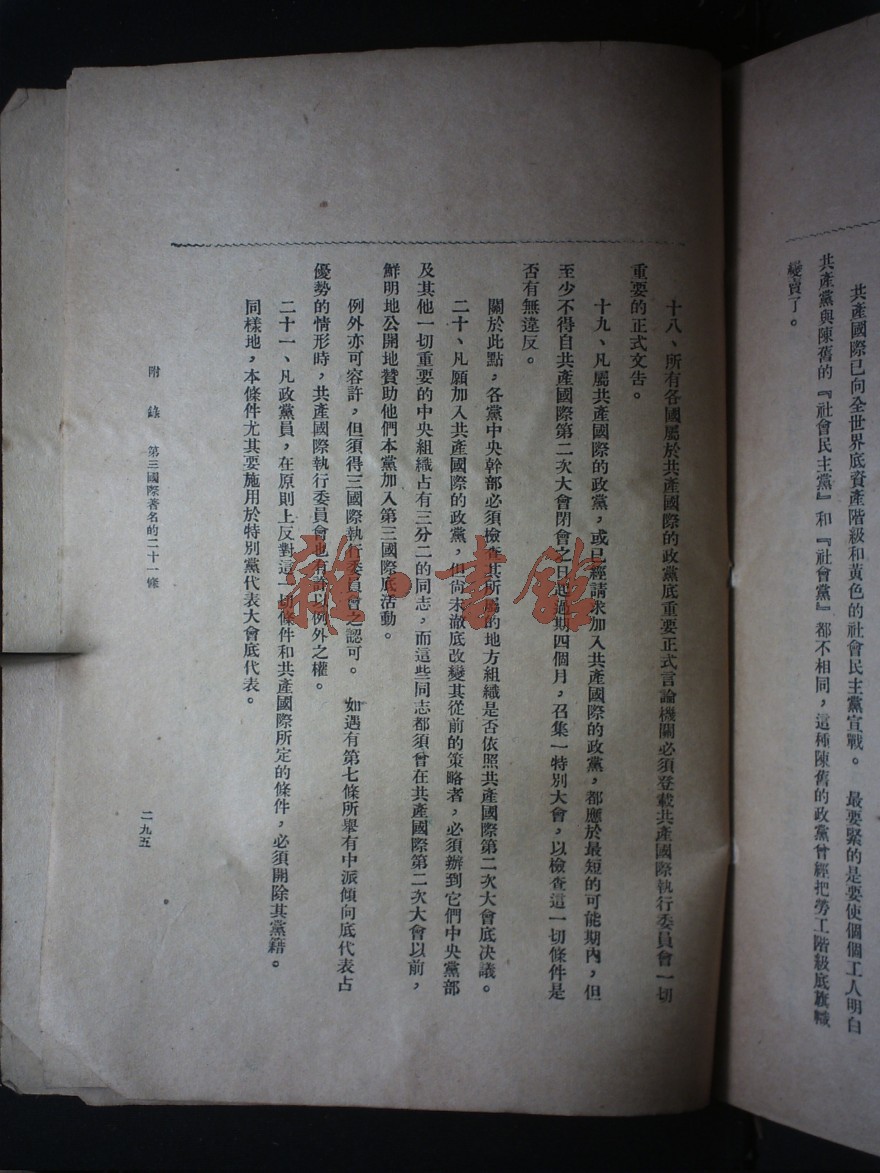 共產國際已向全世界底資產階級和黃色的社會民主黨宣戰。 最要緊的是要使個個工人明白
共產黨與陳舊的『社會民主黨』和『社會黨』都不相同，這種陳舊的政黨曾經把勞工階級底旗幟
變賣了。
十八、所有各國屬於共產國際的政黨底重要正式言論機關必須登載共產國際執行委員會一切
重要的正式文告。
十九、凡屬共產國際的政黨，或已經請求加入共產國際的政黨，都應於最短的可能期內，但
至少不得自共產國際第二次大會閉會之日起過期四個月，召集一特別大會，以檢查這一切條件是
否有無違反。
關於此點，各黨中央幹部必須檢查其所屬的地方組織是否依照共產國際第二次大會底決議。
二十、凡願加入共產國際的政黨，但尚未澈底改變其從前的策略者，必須辦到它們中央黨部
及其他一切重要的中央組織占有三分二的同志，而這些同志都須曾在共產國際第二次大會以前，
鮮明地公開地贊助他們本黨加入第三國際底活動。
例外亦可容許，但須得三國際執行委員會之認可。 如遇有第七條所舉有中派傾向底代表占
優勢的情形時，共產國際執行委員會也有許以例外之權。
二十一、凡政黨員，在原則上反對這一切條件和共產國際所定的條件，必須開除其黨籍。
同樣地，本條件尤其要施用於特別黨代表大會底代表。
附錄 第三國際著名的二十一條
二九五
雜·書館